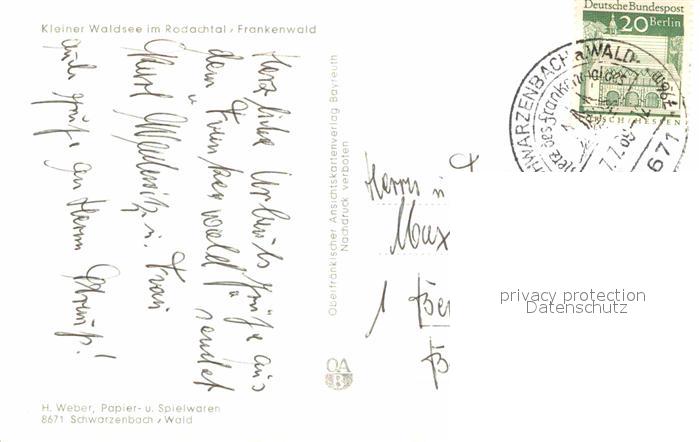 Kleiner Waldsee im Rodachtal, Frankenwald
Herzliche Urlaubsgrüße aus
dem Frankenwald sendet
Frau
auch Grüße an Herrn
Oberfränkischer Ansichtskartenverlag Bayreuth
Nachdruck verboten
OA
B
H. Weber, Papier- u. Spielwaren
8671 Schwarzenbach/Wald
Deutsche Bundespost
20 Berlin
LORSCH/HESSEN
SCHWARZENBACH a. WALD
Herz des Frankenwaldes
8671
Herrn u.
Max
1 Ber
B
privacy protection
Datenschutz